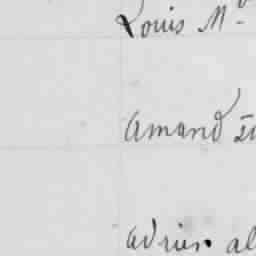 Louis M
Amand
Adrien al